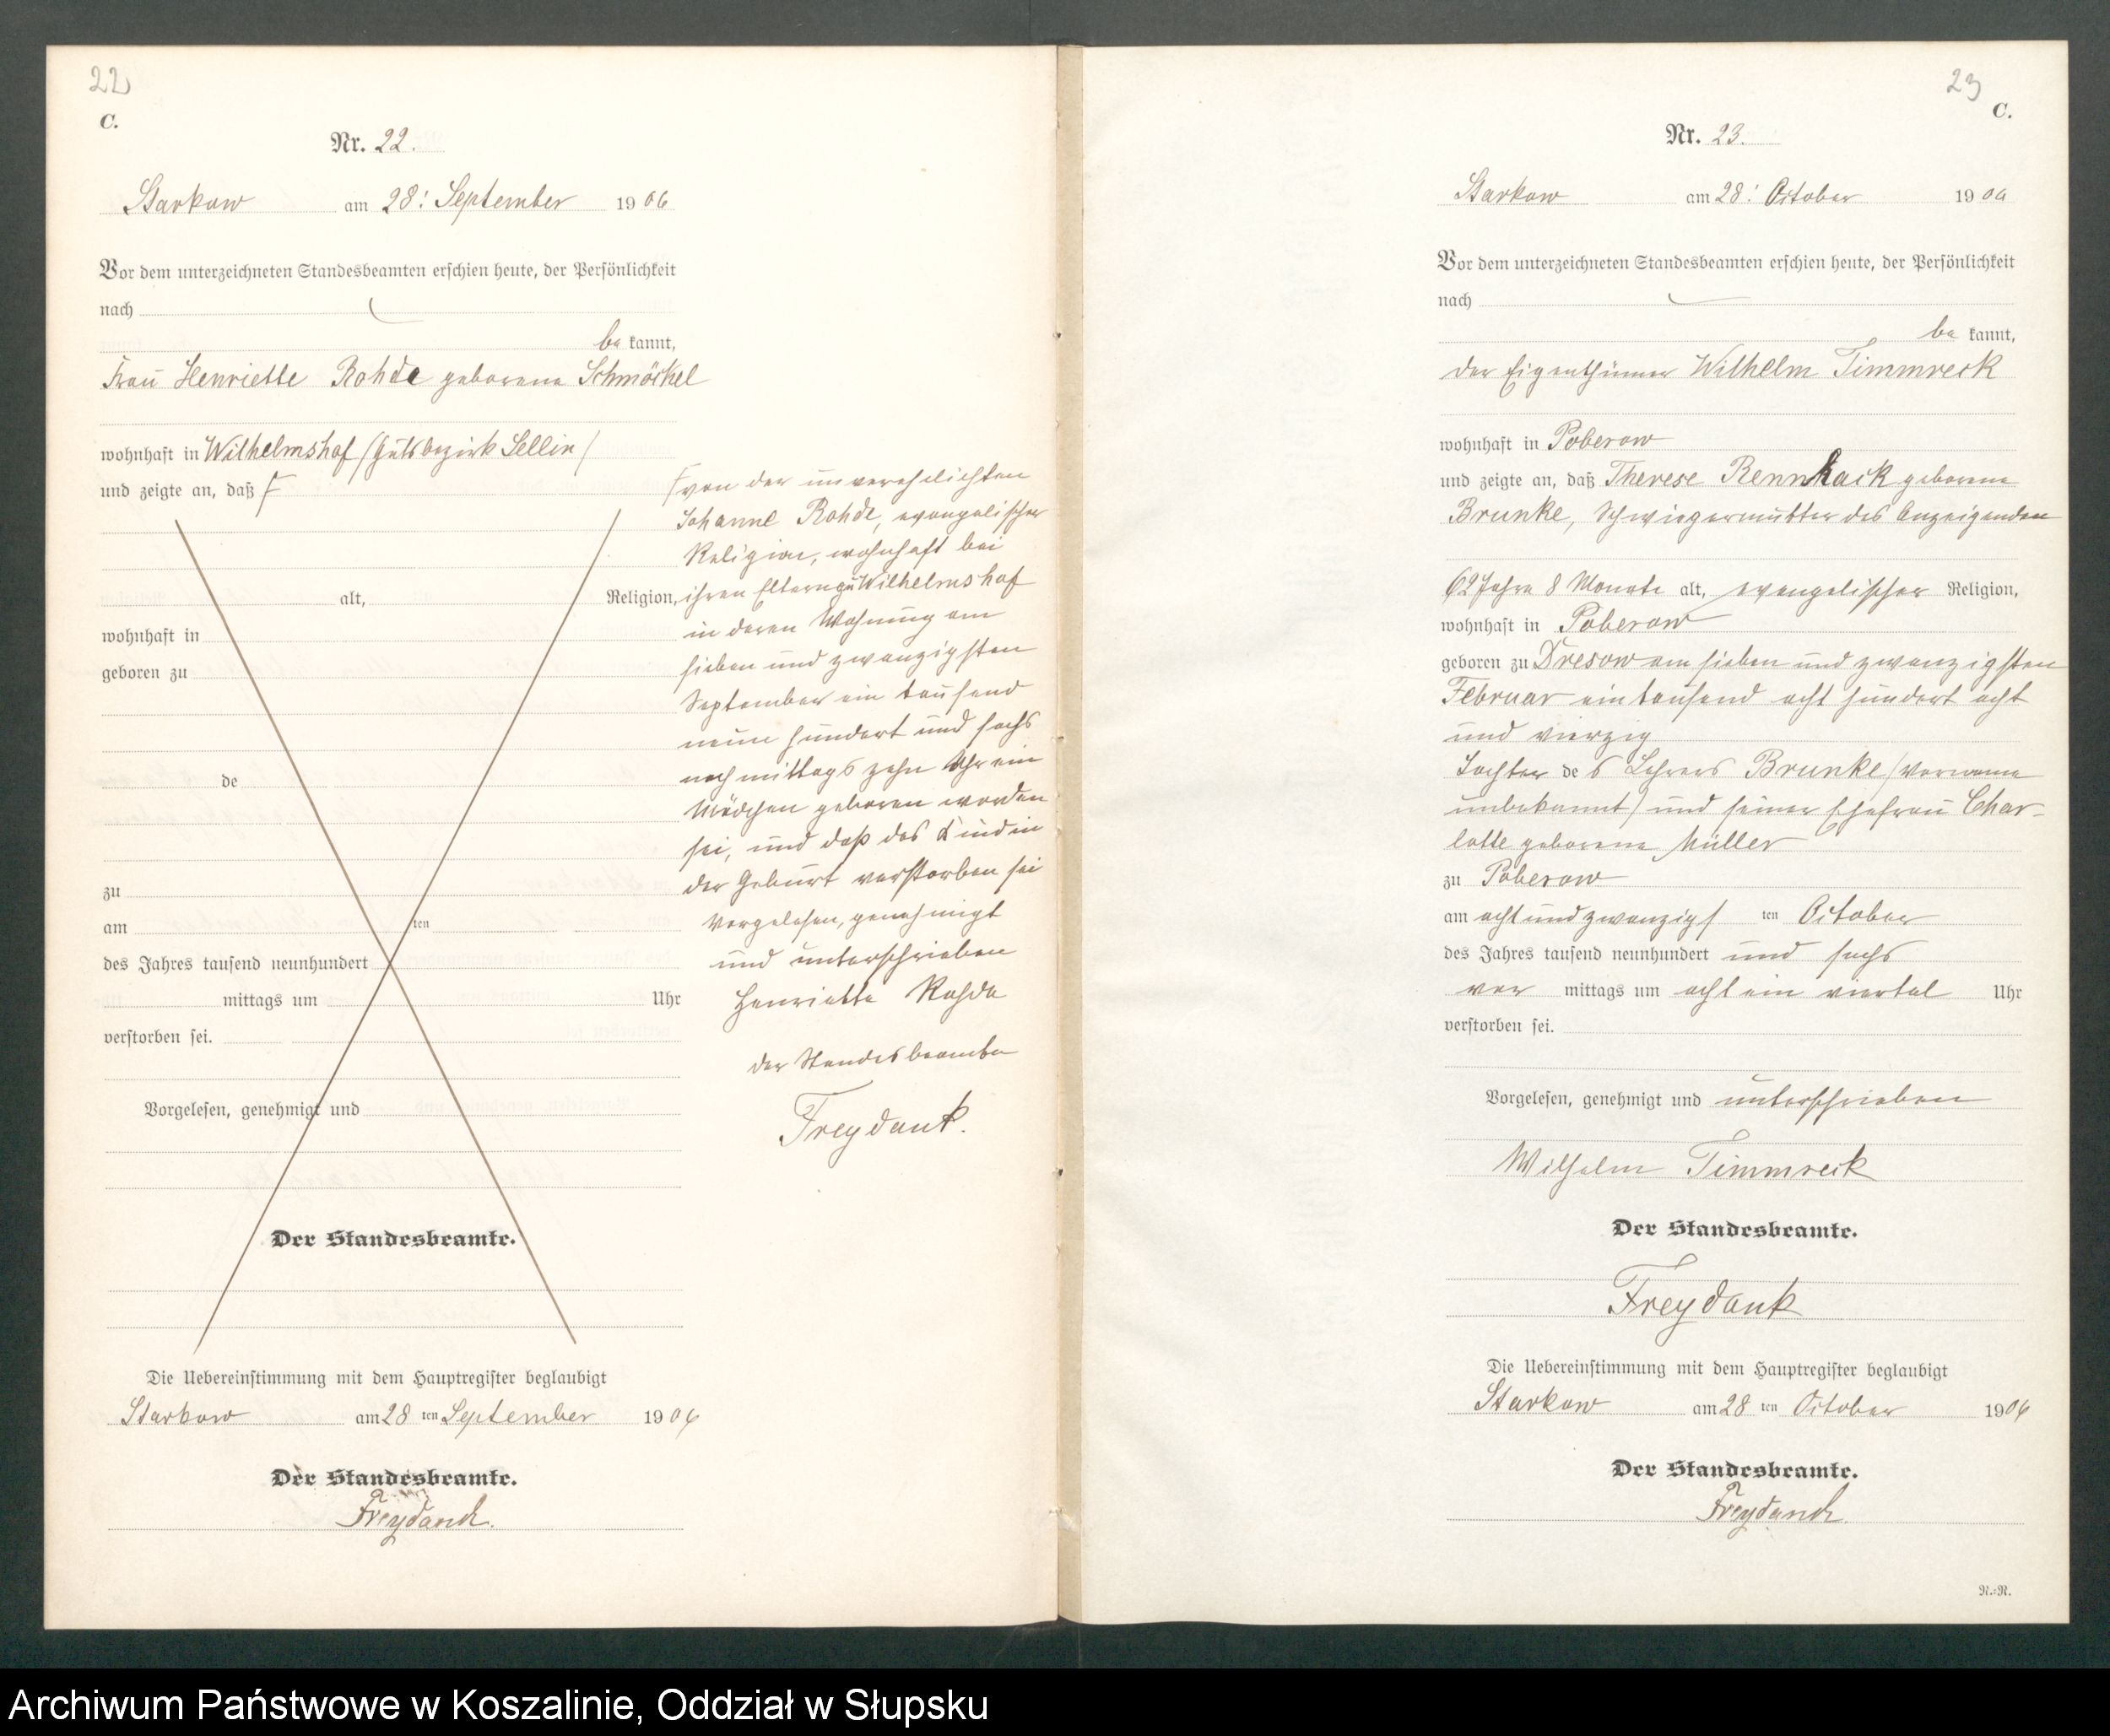 22
C.
Nr. 22.
Starkow am 28: September 1906
Vor dem unterzeichneten Standesbeamten erschien heute, der Persönlichkeit
nach
be kannt,
Frau Henriette Rohde geborene Schmöckel
wohnhaft in Wilhelmshof /Gutsbezirk Sellin/
und zeigte an, daß
alt, Religion,
wohnhaft in
geboren zu
de
zu
am ten
des Jahres tausend neunhundert
mittags um Uhr
verstorben sei.
Vorgelesen, genehmigt und
Der Standesbeamte.
Die Uebereinstimmung mit dem Hauptregister beglaubigt
Starkow am 28 ten September 1906
Der Standesbeamte.
Freydank.
von der unverehelichten
Johanne Rohde, evangelischer
Religion, wohnhaft bei
ihren Eltern zu Wilhelmshof
in deren Wohnung am
sieben und zwanzigsten
September ein tausend
neun hundert und sechs
nachmittags zehn Uhr ein
Mädchen geboren worden
sei, und daß das Kind in
der Geburt verstorben sei
Vorgelesen, genehmigt
und unterschrieben
Henriette Rohde
der Standesbeamte
Freydank.
23
C.
Nr. 23.
Starkow am 28: October 1906
Vor dem unterzeichneten Standesbeamten erschien heute, der Persönlichkeit
nach
be kannt,
der Eigenthümer Wilhelm Timmreck
wohnhaft in Poberow
und zeigte an, daß Therese Rennhack geborene
Brunke, Schwiegermutter des Anzeigenden
62 Jahre 8 Monate alt, evangelischer Religion,
wohnhaft in Poberow
geboren zu Dresow am sieben und zwanzigsten
Februar ein tausend acht hundert acht
und vierzig
Tochter de s Lehrers Brunke /Vorname
unbekannt/ und seiner Ehefrau Char-
lotte geborene Müller
zu Poberow
am acht und zwanzigs ten October
des Jahres tausend neunhundert und sechs
vor mittags um acht ein viertel Uhr
verstorben sei.
Vorgelesen, genehmigt und unterschrieben
Wilhelm Timmreck
Der Standesbeamte.
Freydank
Die Uebereinstimmung mit dem Hauptregister beglaubigt
Starkow am 28 ten October 1906
Der Standesbeamte.
Freydank.
N.=N.
Archiwum Państwowe w Koszalinie, Oddział w Słupsku